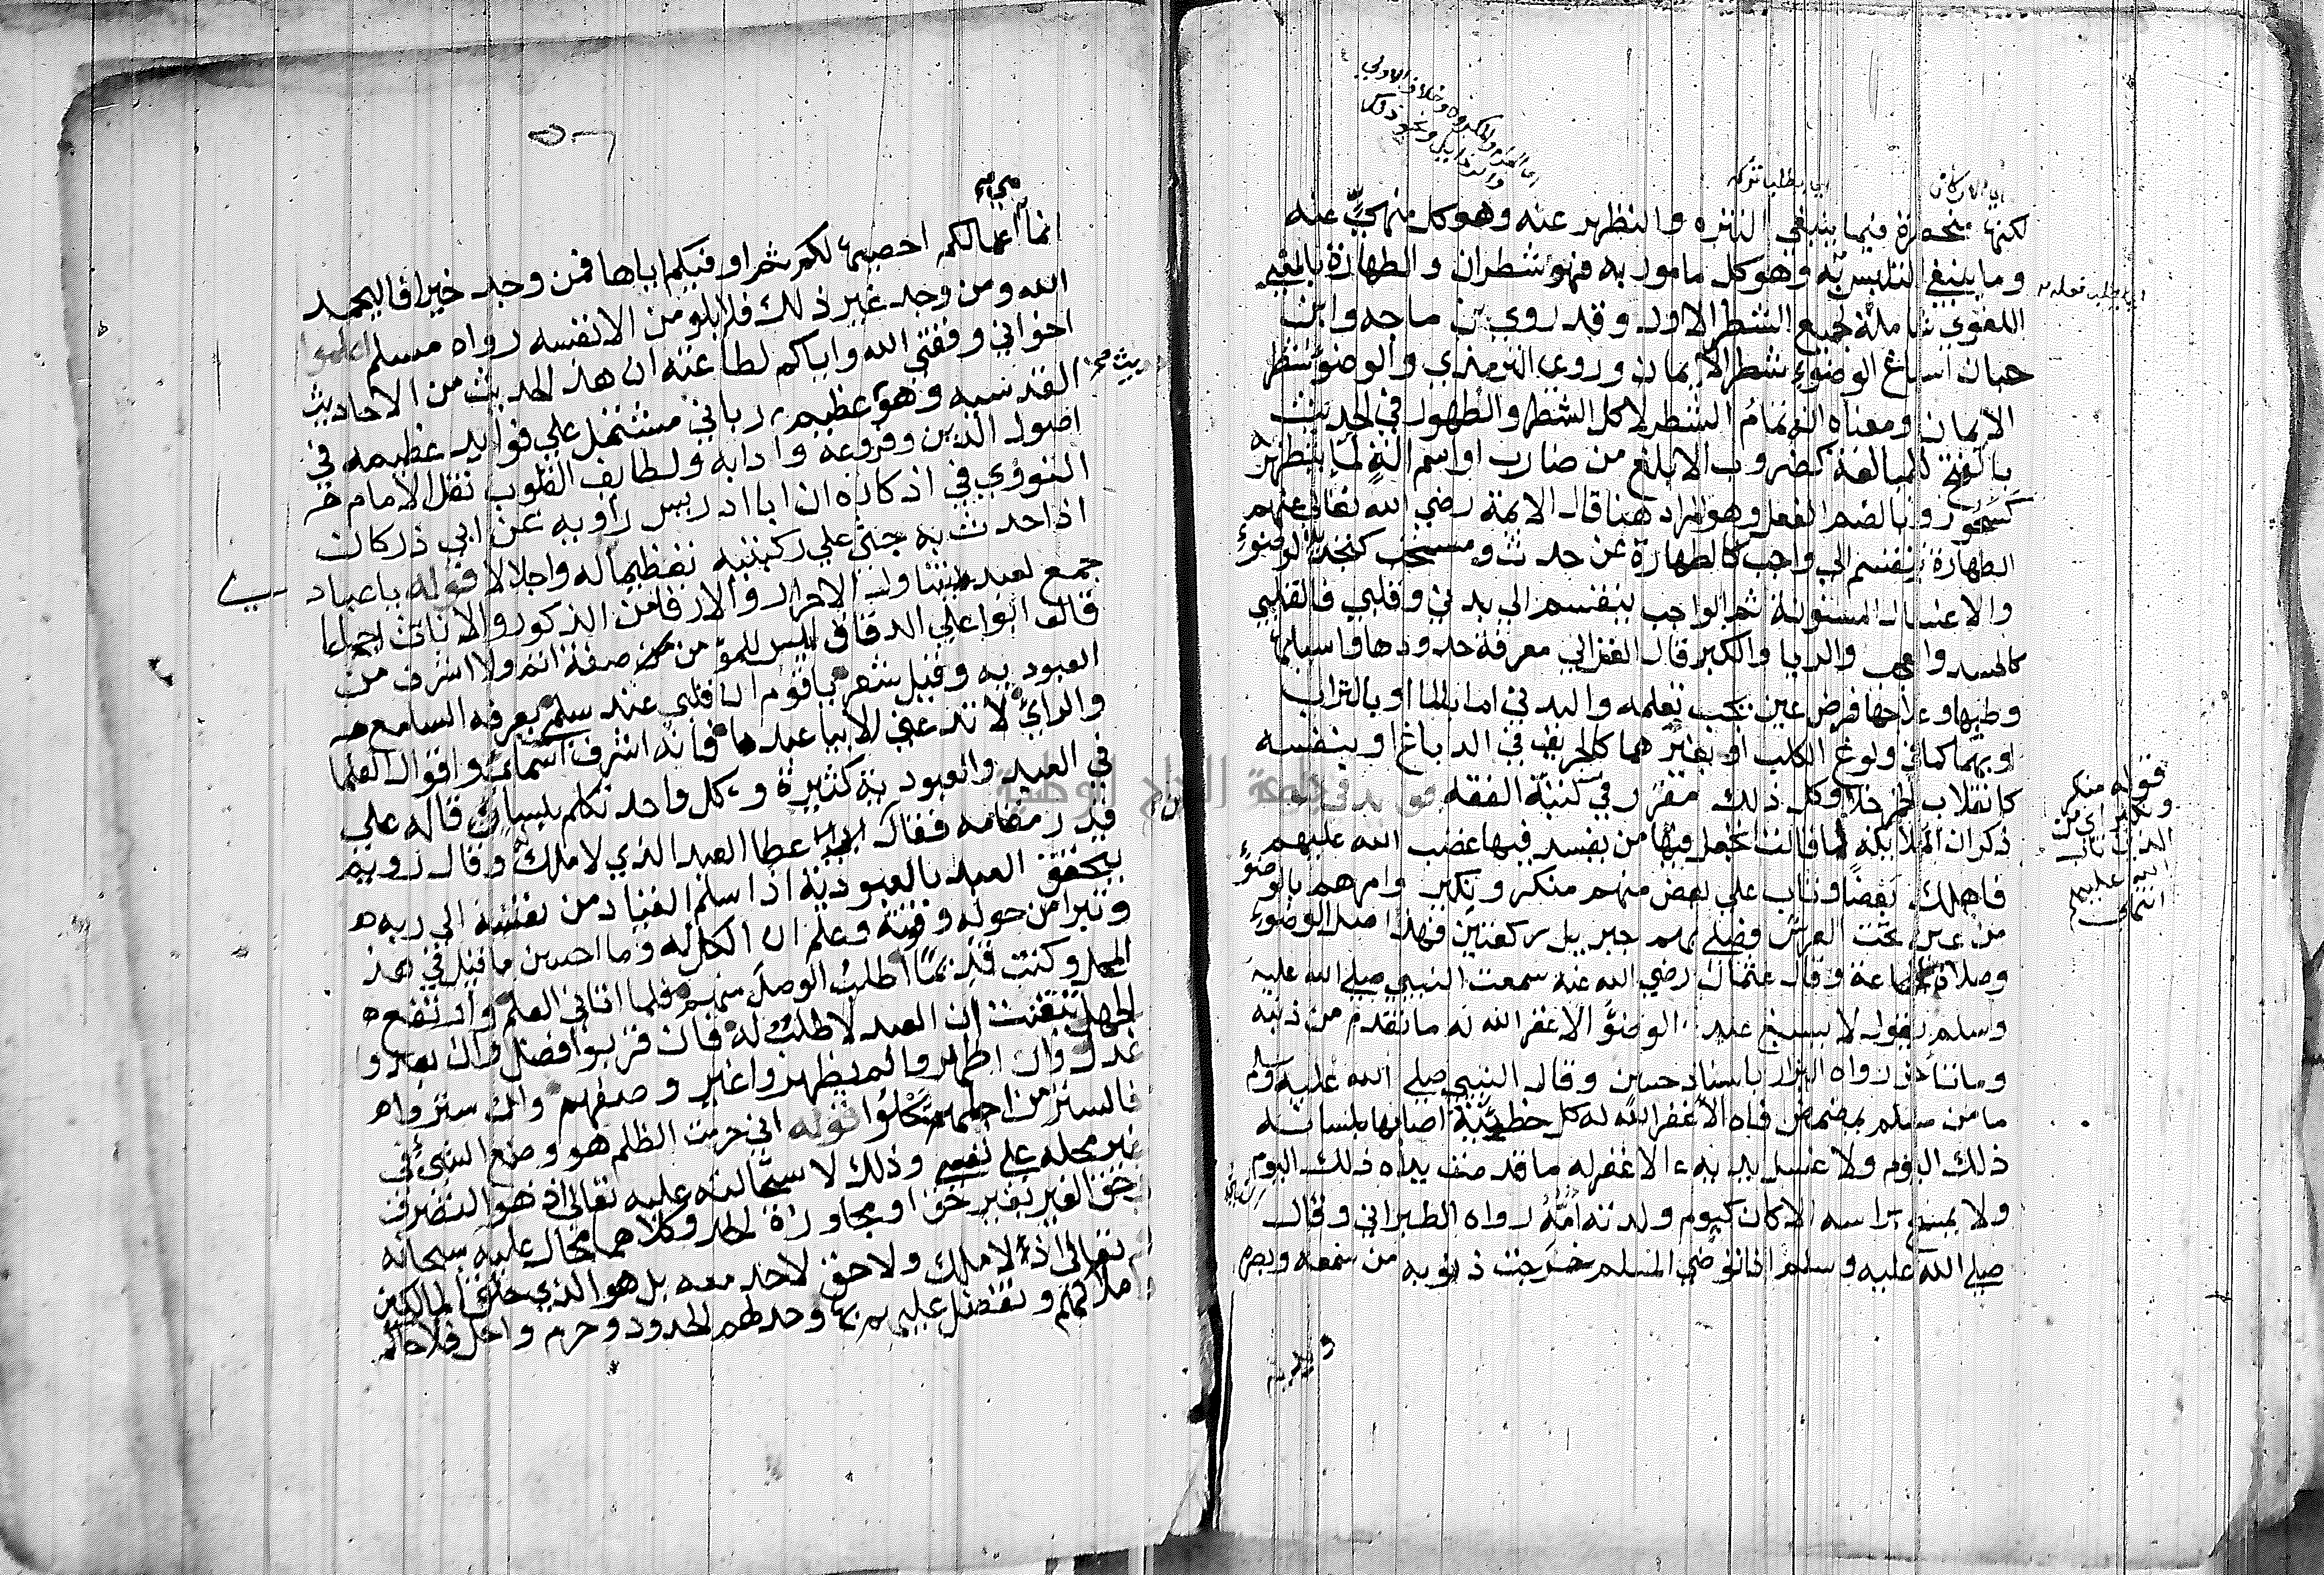 لكنها منحصرة فيما ينبغي التنزه والتطهر عنه وهو كل منهي عنه
وما ينبغي التلبس به وهو كل مامور به فهو شطران والطهارة بالمعني
اللغوي شاملة لجميع الشطر الاول وقد روي بن ماجه وابن
حبان اسباغ الوضوء شطر الايمان وروي الترمذي والوضؤ شطر
الايمان ومعناه انه تمام الشطر لا كل الشطر والطهور في الحديث
بالفتح للمبالغة كضروب الابلغ من ضارب او اسم الة لما يتطهر به
كسحور وبالضم الفعل وهو المراد هنا قال الايمة رضي الله تعالى عنهم
الطهارة تنقسم الي واجب كالطهارة عن حدث ومستحب كتجديد الوضوء
والاغتسال المسنونة ثم الواجب ينقسم الي بدني وقلبي فالقلبي
كالحسد والعجب والريا والكبر قال الغزالي معرفة حدودها واسبابها
وطبها وعلاجها فرض عين يجب تعلمه والبدني اما بالما او بالتراب
او بهما كما في ولوغ الكلب او بغيرهما كالحريف في الدباغ او بنفسه
كانقلاب الخمر خلا وكل ذلك مقرر في كتب الفقه
ذكر ان الملايكة لما قالت اتجعل فيها من يفسد فيها غضب الله عليهم
فاهلك بعضا وتاب علي بعض منهم منكر ونكير وامرهم بالوضؤ
من عين تحت العرش فصلي بهم جبريل ركعتين فهذا اصل الوضوء
وصلاة الجماعة وقال عثمان رضي الله عنه سمعت النبي صلي الله عليه
وسلم يقول لا يسبغ عبد الوضؤ الا غفر الله له ما تقدم من ذنبه
وما تاخر رواه البزار باسناد حسن وقال النبي صلي الله عليه وسلم
ما من مسلم يمضمض فاه الا غفر الله له كل خطيئة اصابها بلسانه
ذلك اليوم ولا غسل يديه الا غفر له ما قدمت يداه ذلك اليوم
ولا يمسح براسه الا كان كيوم ولدته امه رواه الطبراني وقال
صلي الله عليه وسلم اذا توضي المسلم خرجت ذنوبه من سمعه وبصره
اي يطلب تركه
اي يطلب فعله
قوله منكر
ونكير اي من
الذين تاب
الله عليهم
انتهى
انما هي اعمالكم احصيها لكم ثم اوفيكم اياها فمن وجد خيرا فاليحمد
الله ومن وجد غير ذلك فلا يلومن الا نفسه رواه مسلم اعلموا
اخواني وفقني الله واياكم لطاعته ان هذ الحديث من الاحاديث
القدسيه وهو عظيم رباني مشتمل علي فوايد عظيمه في
اصول الدين وفروعه وادابه ولطايف القلوب نقل الامام
النووي في اذكاره ان ابا ادريس راويه عن ابي ذر كان
اذا حدث به جثي علي ركبتيه تعظيما له واجلالا قوله يا عباد
جمع لعبد يتناول الاحرار والارقا من الذكور والاناث اجماعا
قال ابوا علي الدقاق ليس للمؤمن صفة اتم ولا اشرف من
العبوديه وقيل شعر يا قوم ان قلبي عند سلمي يعرفه السامع
والرائي لا تدعني الا بيا عبدها فانه اشرف اسمائي واقوال العلما
في العبد والعبودية كثيرة وكل واحد تكلم بلسان قاله علي
قدر مقامه فقال ابن عطا العبد الذي لا ملك له وقال رويم
يتحقق العبد بالعبودية اذا سلم القياد من نفسه الي ربه
وتبرا من حوله وقوته وعلم ان الكل له وما احسن ما قيل في هذ
المحل وكنت قديما اطلب الوصل منهم فلما اتاني العلم وارتفع
الجهل تيقنت ان العبد لا طلب له فان قربوا فضل وان بعدوا
عدل وان اظهروا لم يظهروا غير وصفهم وان ستروا
فالستر من اجلهم يحلوا قوله اني حرمت الظلم هو وضع الشئ في
غير محله علي نفسي وذلك لاستحالته عليه تعالي اذ هو التصرف في
حق الغير بغير حق او مجاوزة الحد وكلاهما محال عليه سبحانه
تعالي اذ لا ملك ولا حق لاحد معه بل هو الذي خلق المالكين
املاكهم وتفضل عليهم بها وحد لهم الحدود وحرم واحل فلا حاكم